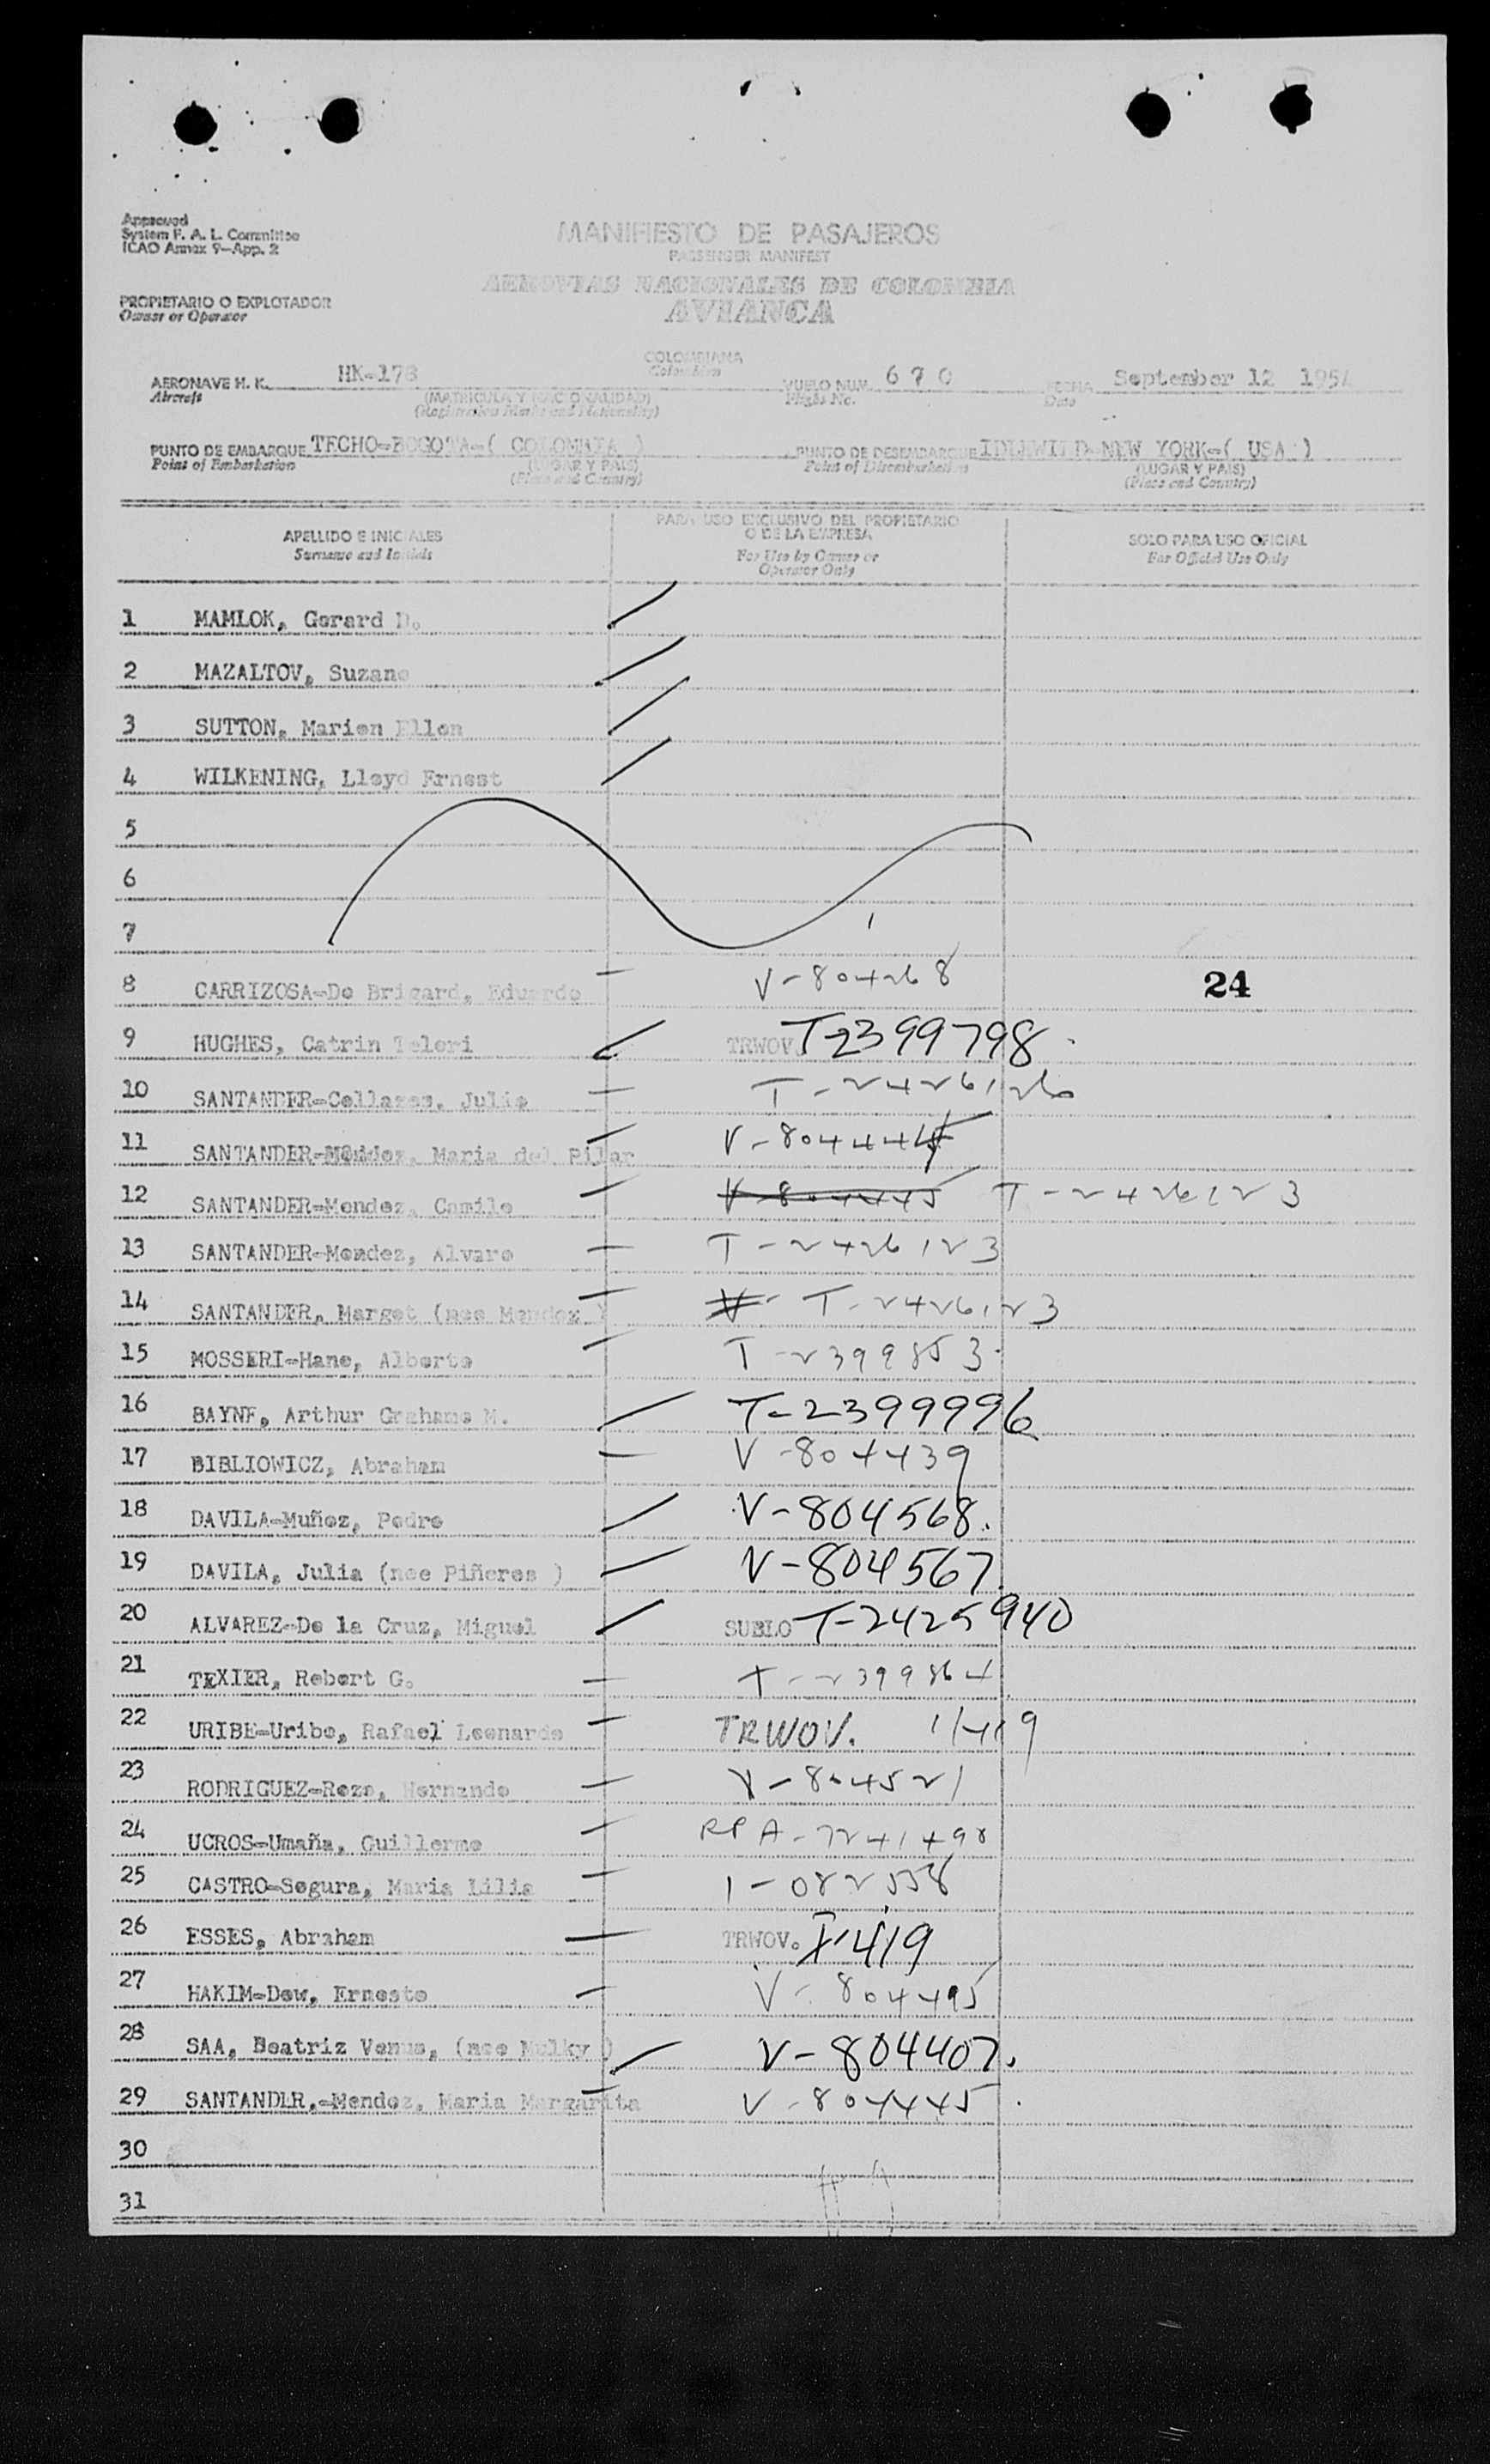 Approved
System F. A. L. Committee
ICAO Annex 9-App. 2
MANIFIESTO DE PASAJEROS
PASSENGER MANIFEST
AEROVIAS NACIONALES DE COLOMBIA
AVIANCA
PROPIETARIO O EXPLOTADOR
Owner or Operator
COLOMBIANA
Colombian
AERONAVE H. K. HK-178 VUELO NUM. 670 FECHA September 12 195
Aircraft (MATRICULA Y NACIONALIDAD) Flight No. Date
(Registration Marks and Nationality)
PUNTO DE EMBARQUE TECHO-BOGOTA-( COLOMBIA ) PUNTO DE DESEMBARQUE IDLEWILD-NEW YORK-( USA )
Point of Embarkation (LUGAR Y PAIS) Point of Disembarkation (LUGAR Y PAIS)
(Place and Country) (Place and Country)
APELLIDO E INICIALES PARA USO EXCLUSIVO DEL PROPIETARIO O DE LA EMPRESA SOLO PARA USO OFICIAL
Surname and Initials For Use by Owner or Operator Only For Official Use Only
1 MAMLOK, Gerard D.
2 MAZALTOV, Suzane
3 SUTTON, Marien Ellen
4 WILKENING, Lloyd Ernest
5
6
7
8 CARRIZOSA-De Brigard, Eduardo V-804268 24
9 HUGHES, Catrin Teleri TRWOV. T-2399798
10 SANTANDER-Collazos, Julio T-2426126
11 SANTANDER-Mendez, Maria del Pilar V-804444
12 SANTANDER-Mendez, Camilo V-804445 T-2426123
13 SANTANDER-Mendez, Alvaro T-2426123
14 SANTANDER, Margot (nee Mendez ) V- T-2426123
15 MOSSERI-Hane, Alberto T-2399853
16 BAYNE, Arthur Grahame M. T-2399996
17 BIBLIOWICZ, Abraham V-804439
18 DAVILA-Muñoz, Pedro V-804568.
19 DAVILA, Julia (nee Piñeres ) V-804567
20 ALVAREZ-De la Cruz, Miguel SUELO T-2425940
21 TEXIER, Robert G. T-2399864
22 URIBE-Uribe, Rafael Leonardo TRWOV.
23 RODRIGUEZ-Rozo, Hernando V-804521
24 UCROS-Umaña, Guillermo RPA-7241498
25 CASTRO-Segura, Maria Lilia
26 ESSES, Abraham TRWOV. I-419
27 HAKIM-Dow, Ernesto V-804495
28 SAA, Beatriz Venus, (nee Mulky ) V-804407.
29 SANTANDER,-Mendez, Maria Margarita V-804445
30
31